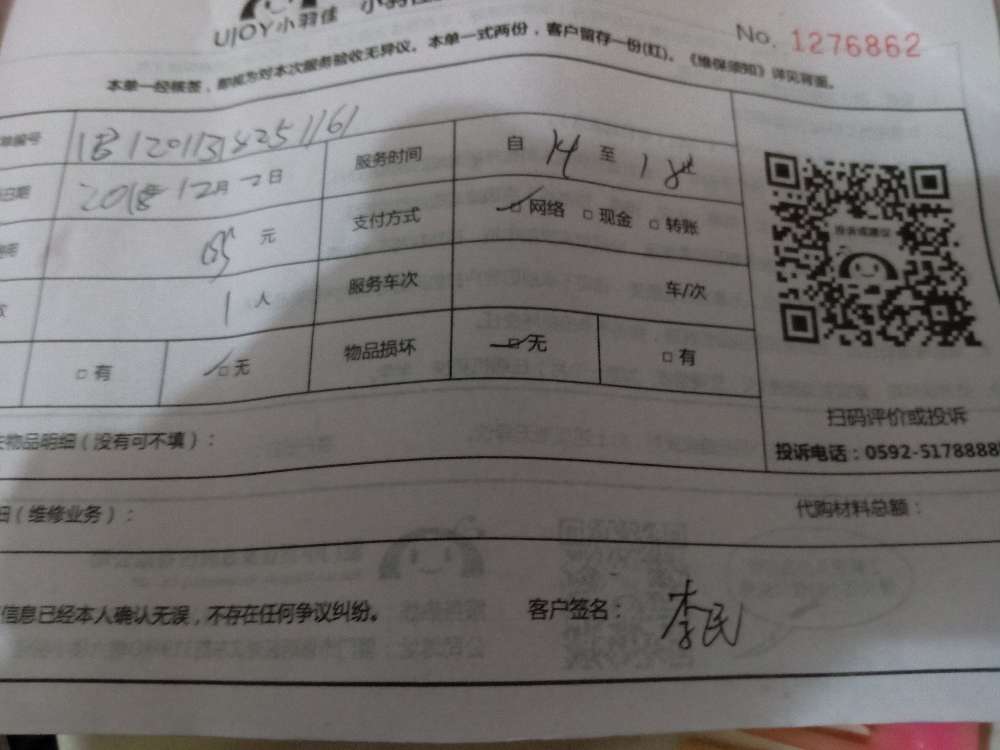 UJOY小羽佳 小羽佳
No. 1276862
本单一经核签，即视为对本次服务验收无异议。本单一式两份，客户留存一份(红)。《维保须知》详见背面。
单编号 181201134251161
服务时间 自 14 至 18时
日期 2018年12月2日
支付方式 网络 现金 转账
元
1 人
服务车次 车/次
有 无 物品损坏 无 有
扫码评价或投诉
物品明细（没有可不填）：
投诉电话：0592-5178888
细（维修业务）：
代购材料总额：
信息已经本人确认无误，不存在任何争议纠纷。
客户签名：李民